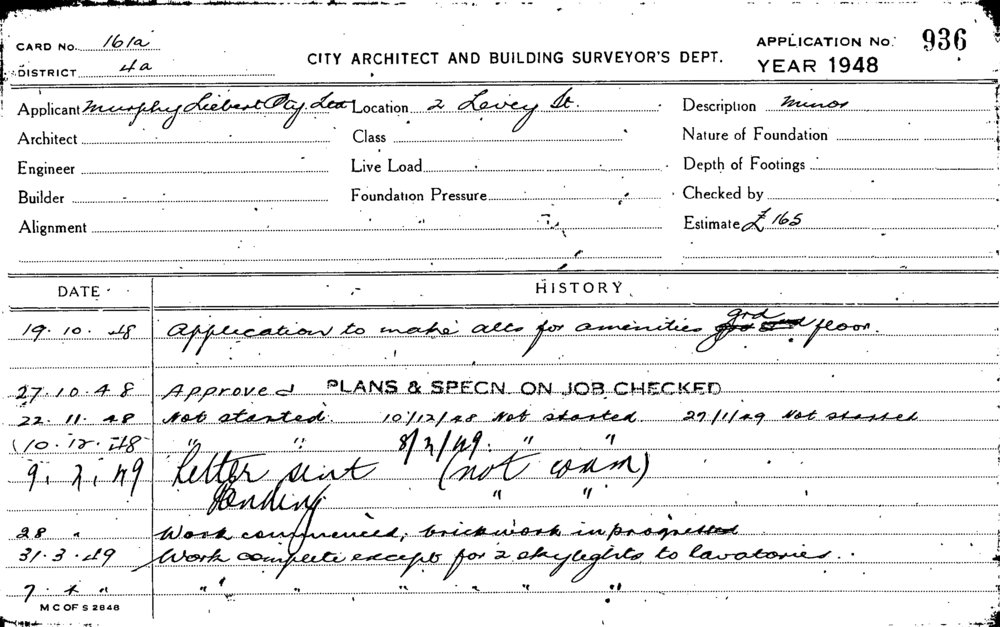 CARD No. 161a
DISTRICT 4a
CITY ARCHITECT AND BUILDING SURVEYOR'S DEPT.
APPLICATION No. 936
YEAR 1948
Applicant Murphy Liebert Pty Ltd Location 2 Levey St. Description minor
Architect Class Nature of Foundation
Engineer Live Load Depth of Footings
Builder Foundation Pressure Checked by
Alignment Estimate £165
DATE HISTORY
19.10.48 Application to make alts for amenities grd floor.
27.10.48 Approved PLANS & SPECN. ON JOB CHECKED
22.11.48 Not started. 10/12/48 Not started. 27/1/49 Not started
10.12.48 " " 8/2/49. " "
9.2.49 Letter sent (not comm)
Pending " "
28 " Work commenced, brickwork in progress
31.3.49 Work complete except for 2 skylights to lavatories.
7.4 " " " " " " "
M C OF S 2848